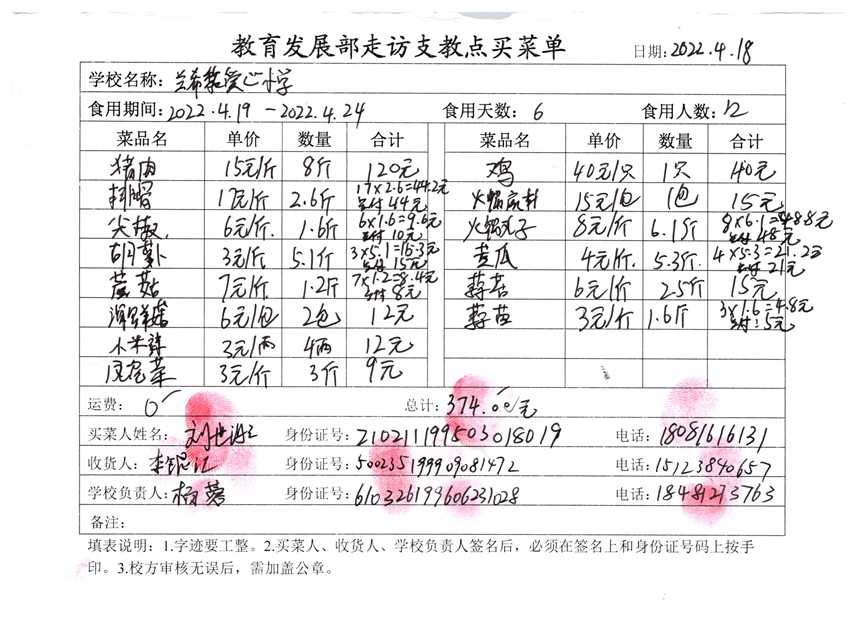 教育发展部走访支教点买菜单
日期:2022.4.18
学校名称: 爱心小学
食用期间:2022.4.19－2022.4.24 食用天数: 6 食用人数: 12
菜品名 单价 数量 合计 菜品名 单价 数量 合计
猪肉 15元/斤 8斤 120元 鸡 40元/只 1只 40元
17元/斤 2.6斤 17×2.6=44.2元 实付 44元 火锅底料 15元/包 1包 15元
尖椒 6元/斤 1.6斤 6×1.6=9.6元 实付 10元 火锅丸子 8元/斤 6.1斤 8×6.1=48.8元 实付 48元
胡萝卜 3元/斤 5.1斤 3×5.1=15.3元 实付 15元 黄瓜 4元/斤 5.3斤 4×5.3=21.2元 实付 21元
蘑菇 7元/斤 1.2斤 7×1.2=8.4元 实付 8元 蒜苔 6元/斤 2.5斤 15元
6元/包 2包 12元 3元/斤 1.6斤 3×1.6=4.8元 实付:5元
小米辣 3元/两 4两 12元
3元/斤 3斤 9元
运费: 0 总计: 374.00元
买菜人姓名: 刘世 身份证号: 210211199503018019 电话: 18081616131
收货人: 李 身份证号: 500235199909081472 电话: 15123840657
学校负责人: 杨蓉 身份证号: 610326199606231028 电话: 18481273763
备注:
填表说明：1.字迹要工整。2.买菜人、收货人、学校负责人签名后，必须在签名上和身份证号码上按手
印。3.校方审核无误后，需加盖公章。